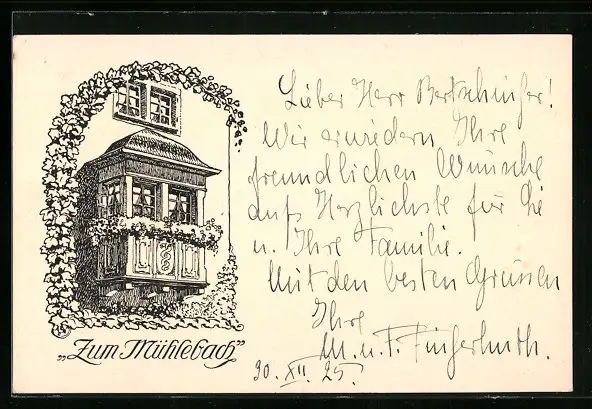 Lieber Herr Bertschinger!
Wir erwiedern Ihre
freundlichen Wünsche
aufs Herzlichste für Sie
u. Ihre Familie.
Mit den besten Grüssen
Ihre
M. u. F. Fingerhuth.
30. XII. 25.
„Zum Mühlebach"